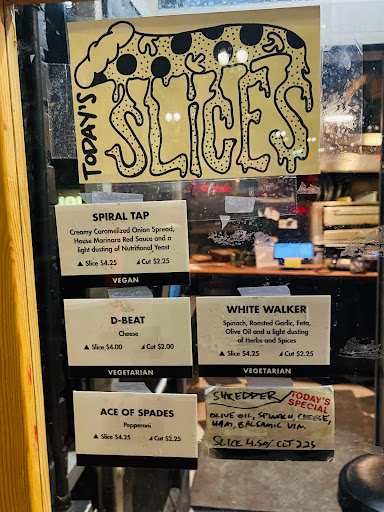 TODAY'S
SLICES
SPIRAL TAP
Creamy Caramelized Onion Spread,
House Marinara Red Sauce and a
light dusting of Nutritional Yeast
Slice $4.25 Cut $2.25
VEGAN
D-BEAT
Cheese
Slice $4.00 Cut $2.00
VEGETARIAN
WHITE WALKER
Spinach, Roasted Garlic, Feta,
Olive Oil and a light dusting
of Herbs and Spices
Slice $4.25 Cut $2.25
VEGETARIAN
ACE OF SPADES
Pepperoni
Slice $4.25 Cut $2.25
SHREDDER / TODAY'S
SPECIAL
OLIVE OIL, SPINACH, CHEESE,
HAM, BALSAMIC VIN.
SLICE 4.50/ CUT 2.25